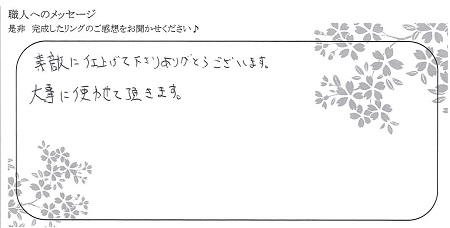 職人へのメッセージ
是非 完成したリングのご感想をお聞かせください♪
素敵に仕上げて下さりありがとうございます。
大事に使わせて頂きます。